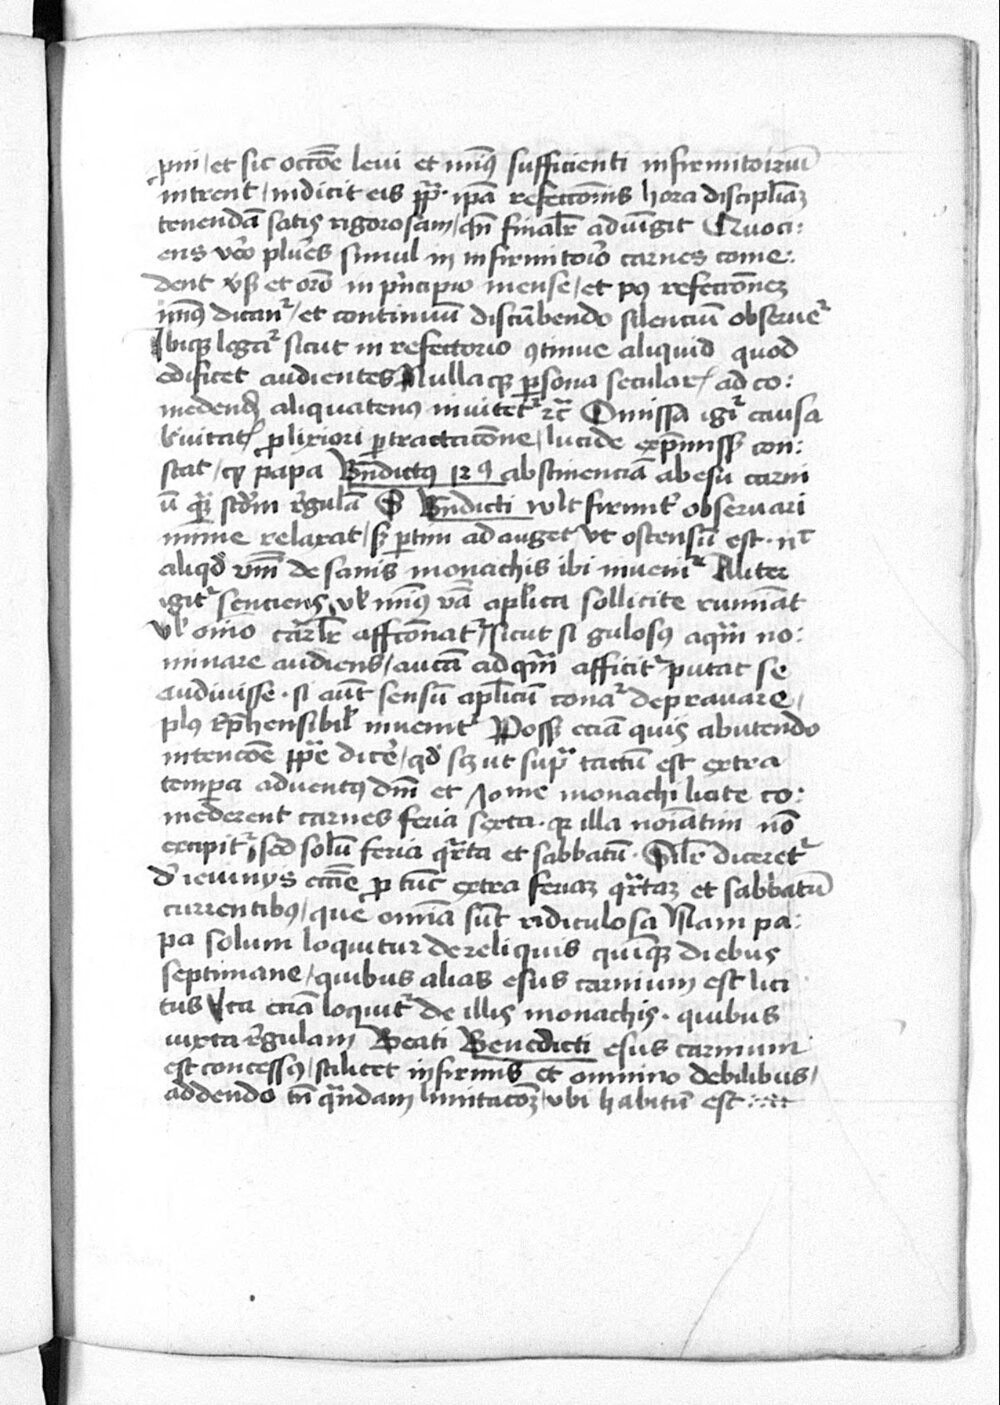 pni / et sic occōe levi et minꝰ sufficienti infirmitoriū
intrent / indicit eis ꝓpt̄ ip̄a refectōnis hora disciplīaꝫ
tenendā satis rigorosam / qn̄ finalr̄ adiūgit Quoci:
ens v̄o plur̄es simul in infirmitorio carnes come:
dent vꝰ et orō in p̄ncipio mense / et pꝰ refectōneꝫ
minꝰ dicant̄ / et continuū discūbendo silenciū observet̄
Ibiqꝫ legat̄ sicut in refectorio ꝯtinue aliquid quod
edificet audientes Nullaqꝫ ꝑsona secular̄ ad co:
medendꝫ aliquatenus invitet̄ ꝛc̄ Omissa igit̄ causa
b̄vitatꝭ ꝓlixiori ꝑtractacōne / lucide exp̄miss con:
stat / ꝙ papa Bn̄dictus 12ꝰ abstinenciā ab esu carni
ū quā scdm̄ r̄gulā S Bn̄dicti wlt firmit̄ observari
mīme relaxat / sꝫ ꝑtim adauget vt ostensū est · nc̄
aliqd̄ vnī de sanis monachis ibi invenit̄ Aliter
igit̄ senciens / vl minꝰ v̄ā aplica sollicite ruminat
vl om̄io carlr̄ affcōnat̄ / sicut si gulosus aquā no:
minare audiens / aucā ad quā afficit̄ putat se
audivisse · si aūt sensū aplicū conat̄ depravare /
plus rep̄hensibil̄ invenit̄ Posset eciā quis abutendo
intencōe pp̄e dicer̄e / qd̄ scꝫ ut sup̄ tactū est extra
tempa adventus dm̄ et lxxme monachi licite co:
mederent carnes feria sexta · qꝛ illa noīatim nō
excipit̄ / sed solū feria q̄rta et sabbatū · Silr̄ diceret̄
d̄ ieiuniis ecc̄ie ꝓ tūc extra feriaꝫ q̄rtaꝫ et sabbatū
currentibꝰ / que om̄ia sūt ridiculosa Nam pa:
pa solum loquitur de reliquis quinqꝫ diebus
septimane / quibus alias esus carnium est lici
tus Ita eciā loquit̄ de illis monachis · quibus
iuxta r̄gulam Beati Benedicti esus carnium
est concessus / scilicet infirmis et omnino debilibus /
addendo tn̄ q̄ndam limitacōꝫ / vbi habitū est